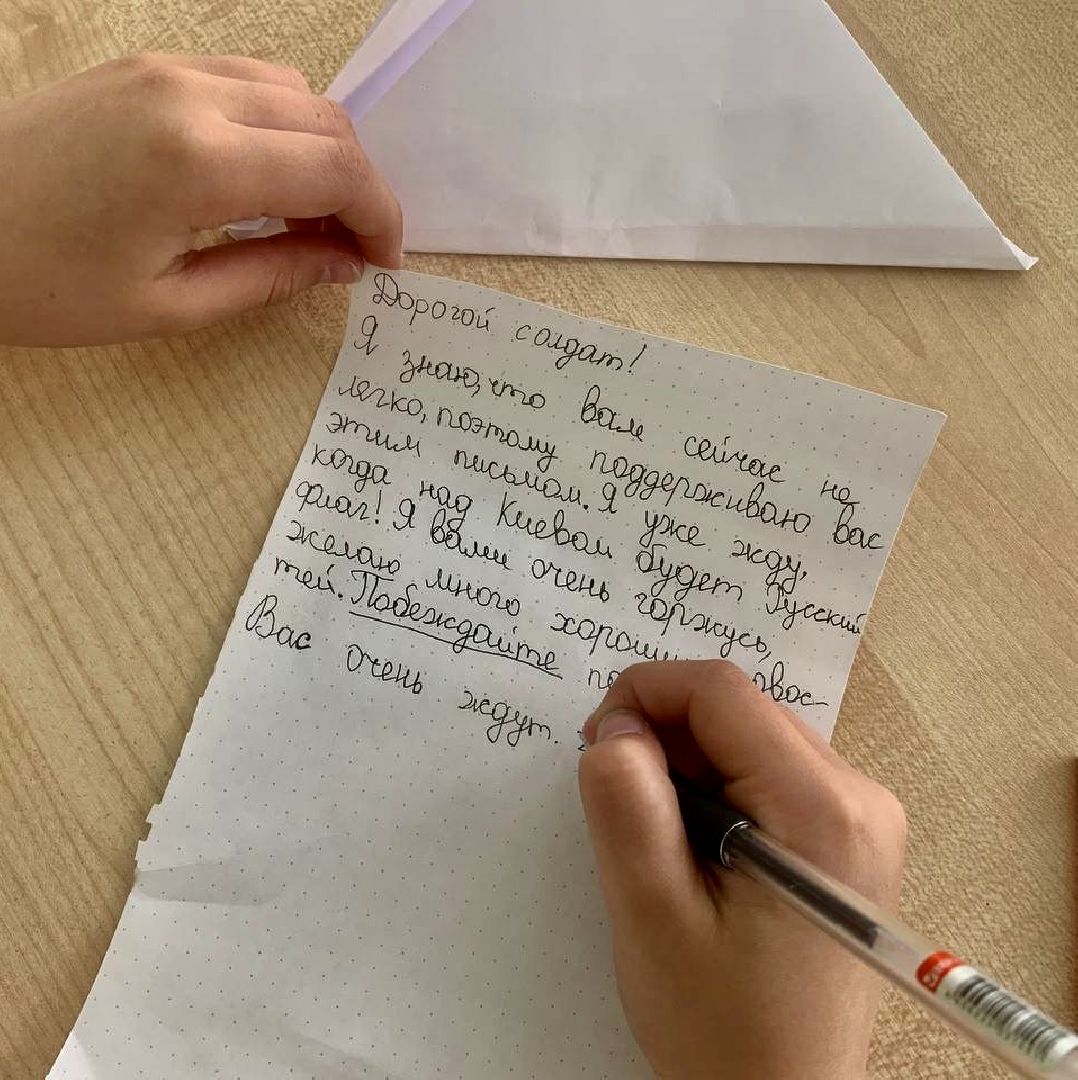 Дорогой солдат!
Я знаю, что вам сейчас не
легко, поэтому поддерживаю вас
этим письмом. Я уже жду,
когда над Киевом будет Русский
флаг! Я вами очень горжусь,
желаю много
тей. Победждайте
Вас очень ждут.